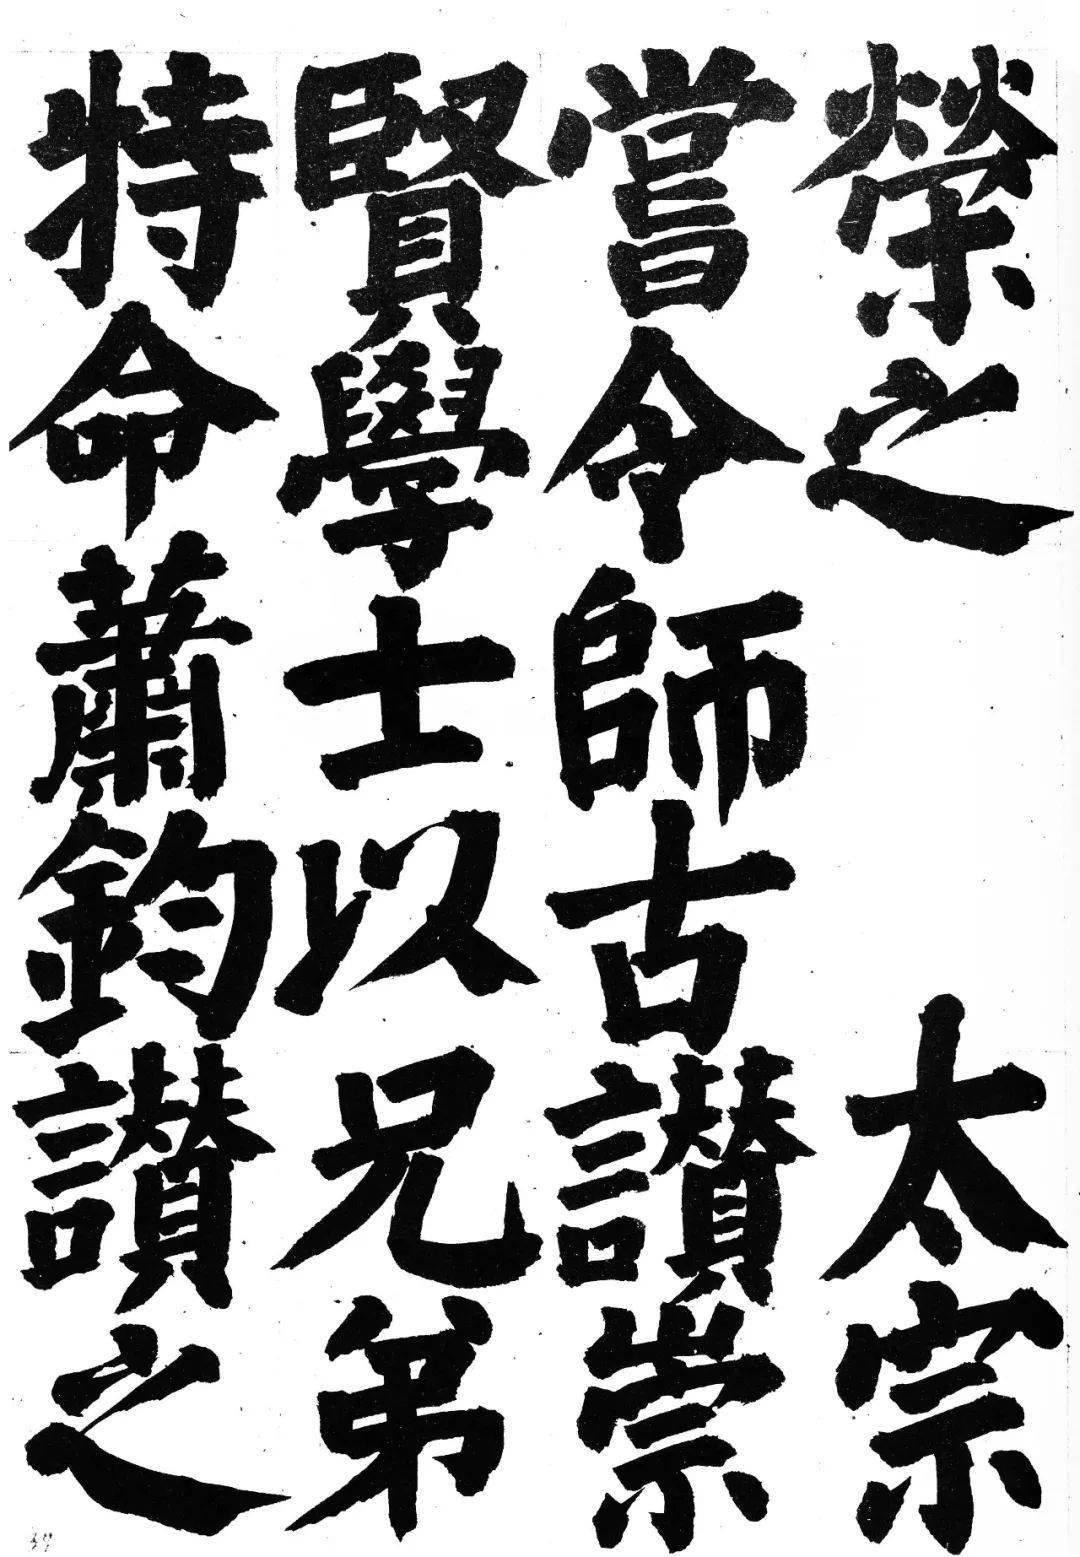 榮之 太宗
嘗令師古讃崇
賢學士以兄弟
特命蕭鈞讃之